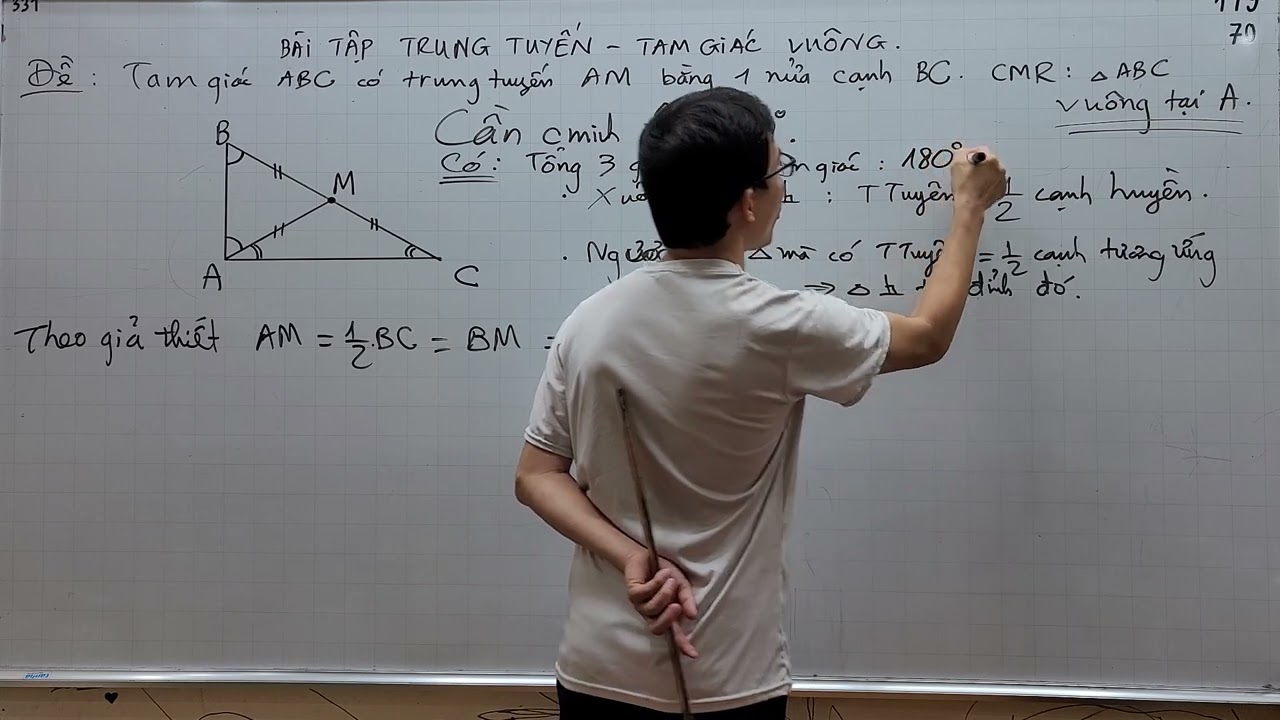 331
119
70
BÀI TẬP TRUNG TUYẾN - TAM GIÁC VUÔNG.
Đề: Tam giác ABC có trung tuyến AM bằng 1 nửa cạnh BC. CMR: △ABC
vuông tại A.
Cần cminh
Có: Tổng 3 giác: 180°
: TTuyến 1/2 cạnh huyền.
△ mà có TTuyến = 1/2 cạnh tương ứng
⇒ △ đỉnh đó.
B
M
A
C
Theo giả thiết AM = 1/2.BC = BM =